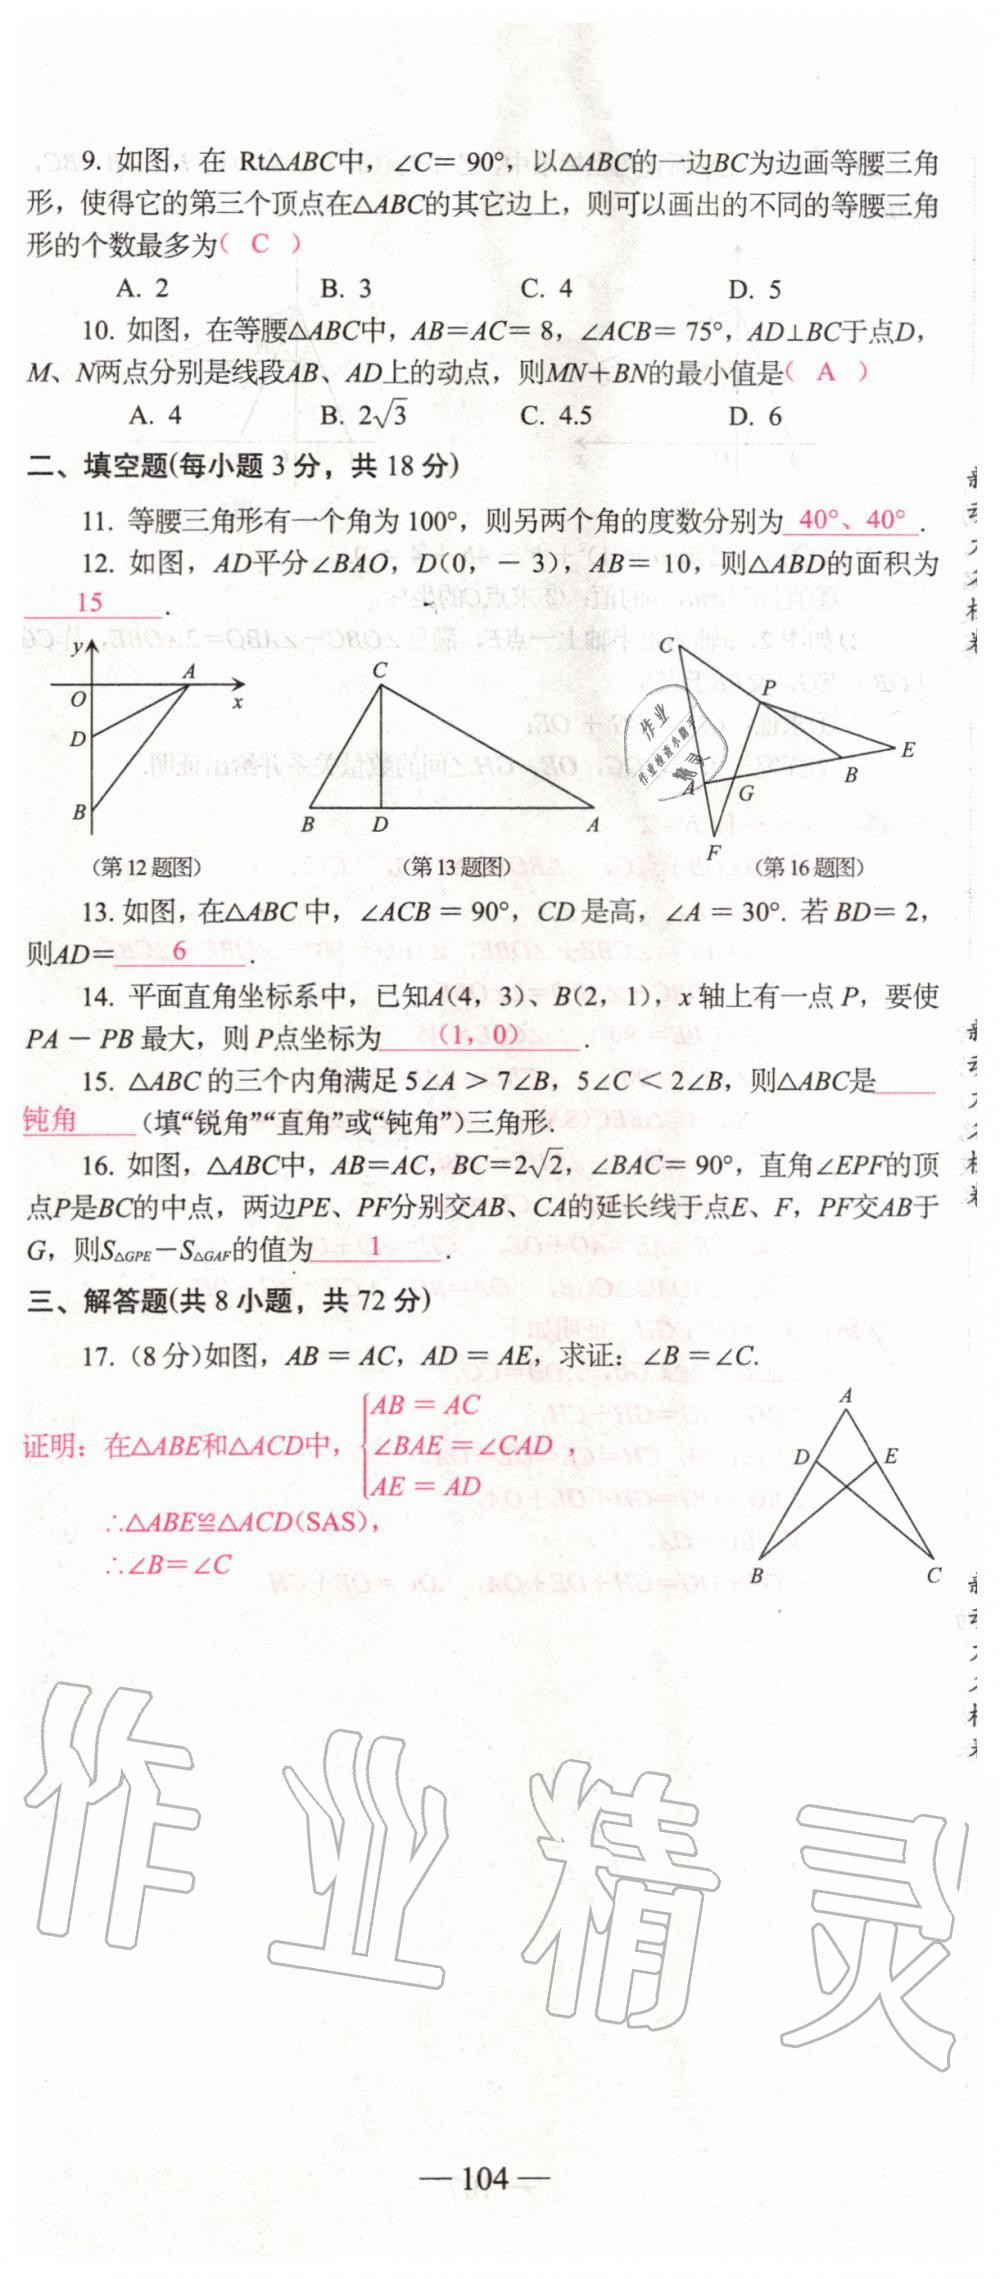 9. 如图，在 Rt△ABC中，∠C＝90°，以△ABC的一边BC为边画等腰三角
形，使得它的第三个顶点在△ABC的其它边上，则可以画出的不同的等腰三角
形的个数最多为( C )
A. 2 B. 3 C. 4 D. 5
10. 如图，在等腰△ABC中，AB＝AC＝8，∠ACB＝75°，AD⊥BC于点D，
M、N两点分别是线段AB、AD上的动点，则MN＋BN的最小值是( A )
A. 4 B. 2√3 C. 4.5 D. 6
二、填空题(每小题 3 分，共 18 分)
11. 等腰三角形有一个角为 100°，则另两个角的度数分别为 40°、40° .
12. 如图，AD平分∠BAO，D(0，－3)，AB＝10，则△ABD的面积为
15 .
y A O x D B
C B D A
C P E B A G F
作业
作业检查小助手
精灵
(第 12 题图) (第 13 题图) (第 16 题图)
13. 如图，在△ABC 中，∠ACB＝90°，CD 是高，∠A＝30°. 若 BD＝2，
则AD＝ 6 .
14. 平面直角坐标系中，已知A(4，3)、B(2，1)，x 轴上有一点 P，要使
PA－PB 最大，则 P点坐标为 (1，0) .
15. △ABC 的三个内角满足 5∠A＞7∠B，5∠C＜2∠B，则△ABC是
钝角 (填“锐角”“直角”或“钝角”)三角形.
16. 如图，△ABC中，AB＝AC，BC＝2√2，∠BAC＝90°，直角∠EPF的顶
点P是BC的中点，两边PE、PF分别交AB、CA的延长线于点E、F，PF交AB于
G，则S△GPE－S△GAF的值为 1 .
三、解答题(共 8 小题，共 72 分)
17. (8 分)如图，AB＝AC，AD＝AE，求证：∠B＝∠C.
证明：在△ABE和△ACD中，{AB＝AC
∠BAE＝∠CAD，
AE＝AD
∴△ABE≌△ACD(SAS)，
∴∠B＝∠C
A D E B C
作业精灵
— 104 —